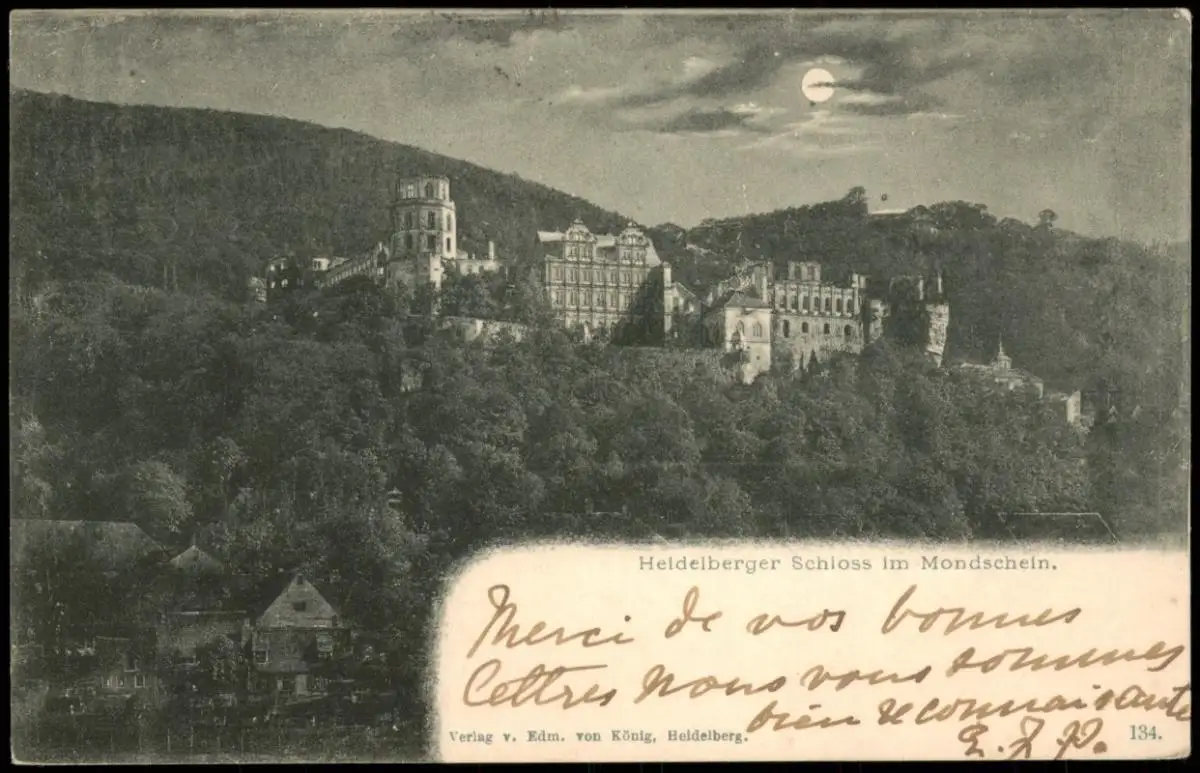 Heidelberger Schloss im Mondschein.
Merci de vos bonnes
Lettres nous vous sommes
bien reconnaisante
Verlag v. Edm. von König, Heidelberg.
134.